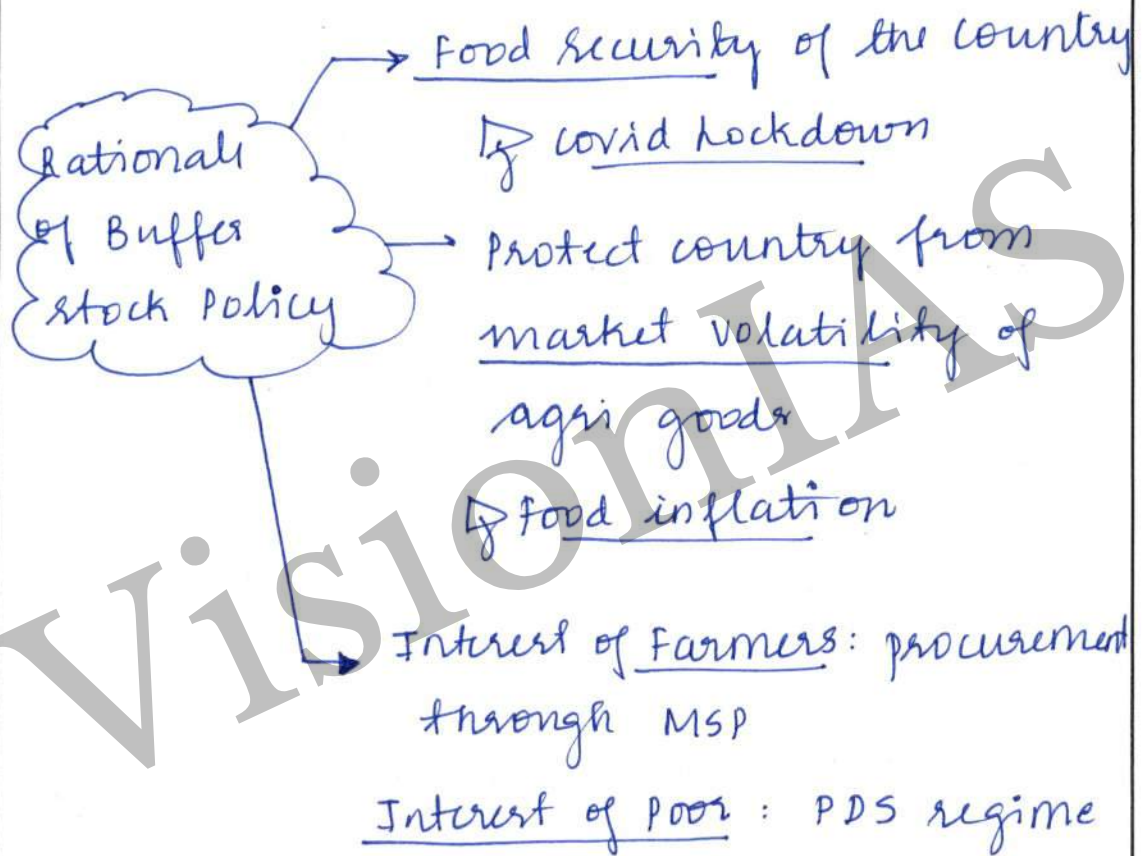 Rationale
of Buffer
Stock Policy
Food security of the country
Eg covid Lockdown
Protect country from
market volatility of
agri goods
Eg Food inflation
Interest of Farmers: procurement
through MSP
Interest of Poor : PDS regime
VisionIAS